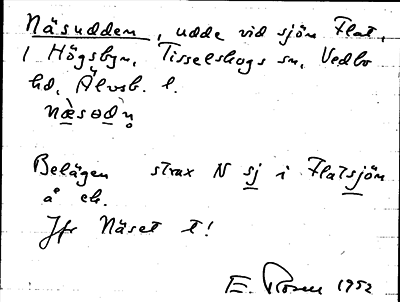 Näsudden, udde vid sjön Flat,
i Högsbyn, Tisselskogs sn, Vedbo
hd, Älvsb. l.
næ̀sɵdn̥
Belägen strax N sj i Flatsjön
å ek.
Jfr Näset t!
E. Rosen 1952